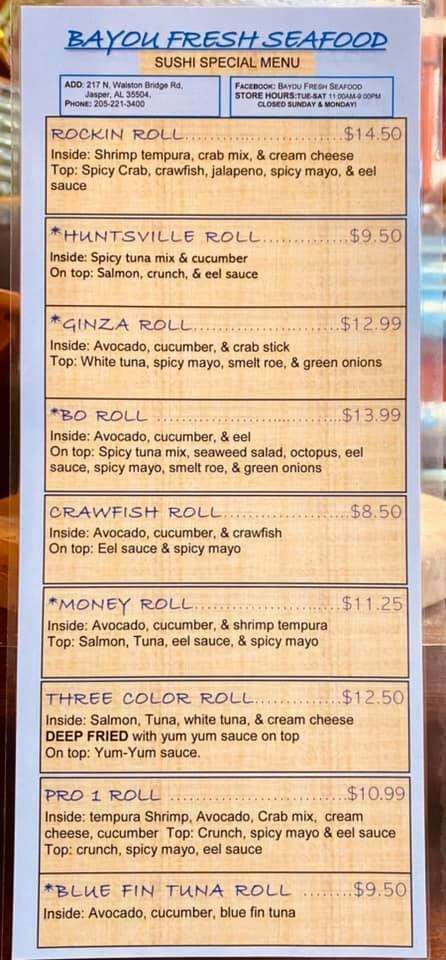 BAYOU FRESH SEAFOOD
SUSHI SPECIAL MENU
ADD: 217 N, Walston Bridge Rd,
Jasper, AL 35504,
PHONE: 205-221-3400
FACEBOOK: BAYOU FRESH SEAFOOD
STORE HOURS:TUE-SAT 11:00AM-9:00PM
CLOSED SUNDAY & MONDAY!
ROCKIN ROLL.......................$14.50
Inside: Shrimp tempura, crab mix, & cream cheese
Top: Spicy Crab, crawfish, jalapeno, spicy mayo, & eel
sauce
*HUNTSVILLE ROLL.............$9.50
Inside: Spicy tuna mix & cucumber
On top: Salmon, crunch, & eel sauce
*GINZA ROLL......................$12.99
Inside: Avocado, cucumber, & crab stick
Top: White tuna, spicy mayo, smelt roe, & green onions
*BO ROLL ..........................$13.99
Inside: Avocado, cucumber, & eel
On top: Spicy tuna mix, seaweed salad, octopus, eel
sauce, spicy mayo, smelt roe, & green onions
CRAWFISH ROLL..................$8.50
Inside: Avocado, cucumber, & crawfish
On top: Eel sauce & spicy mayo
*MONEY ROLL.....................$11.25
Inside: Avocado, cucumber, & shrimp tempura
Top: Salmon, Tuna, eel sauce, & spicy mayo
THREE COLOR ROLL............$12.50
Inside: Salmon, Tuna, white tuna, & cream cheese
DEEP FRIED with yum yum sauce on top
On top: Yum-Yum sauce.
PRO 1 ROLL .........................$10.99
Inside: tempura Shrimp, Avocado, Crab mix, cream
cheese, cucumber Top: Crunch, spicy mayo & eel sauce
Top: crunch, spicy mayo, eel sauce
*BLUE FIN TUNA ROLL ........$9.50
Inside: Avocado, cucumber, blue fin tuna